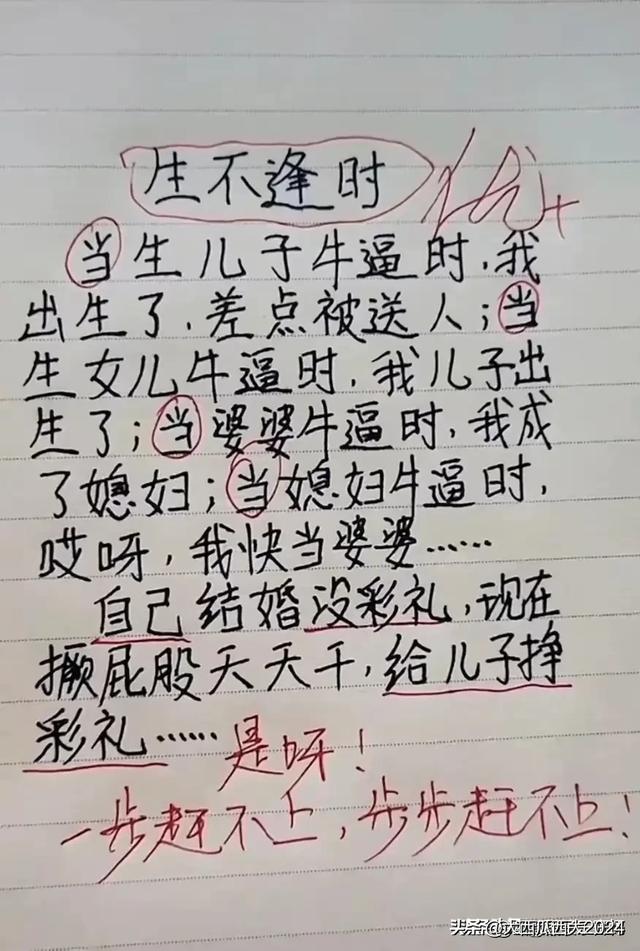 生不逢时 优+
当生儿子牛逼时,我
出生了,差点被送人;当
生女儿牛逼时,我儿子出
生了;当婆婆牛逼时,我成
了媳妇;当媳妇牛逼时,
哎呀,我快当婆婆……
自己结婚没彩礼,现在
撅屁股天天干,给儿子挣
彩礼…… 是呀!
一步赶不上,步步赶不上!
头条@大西瓜西大2024